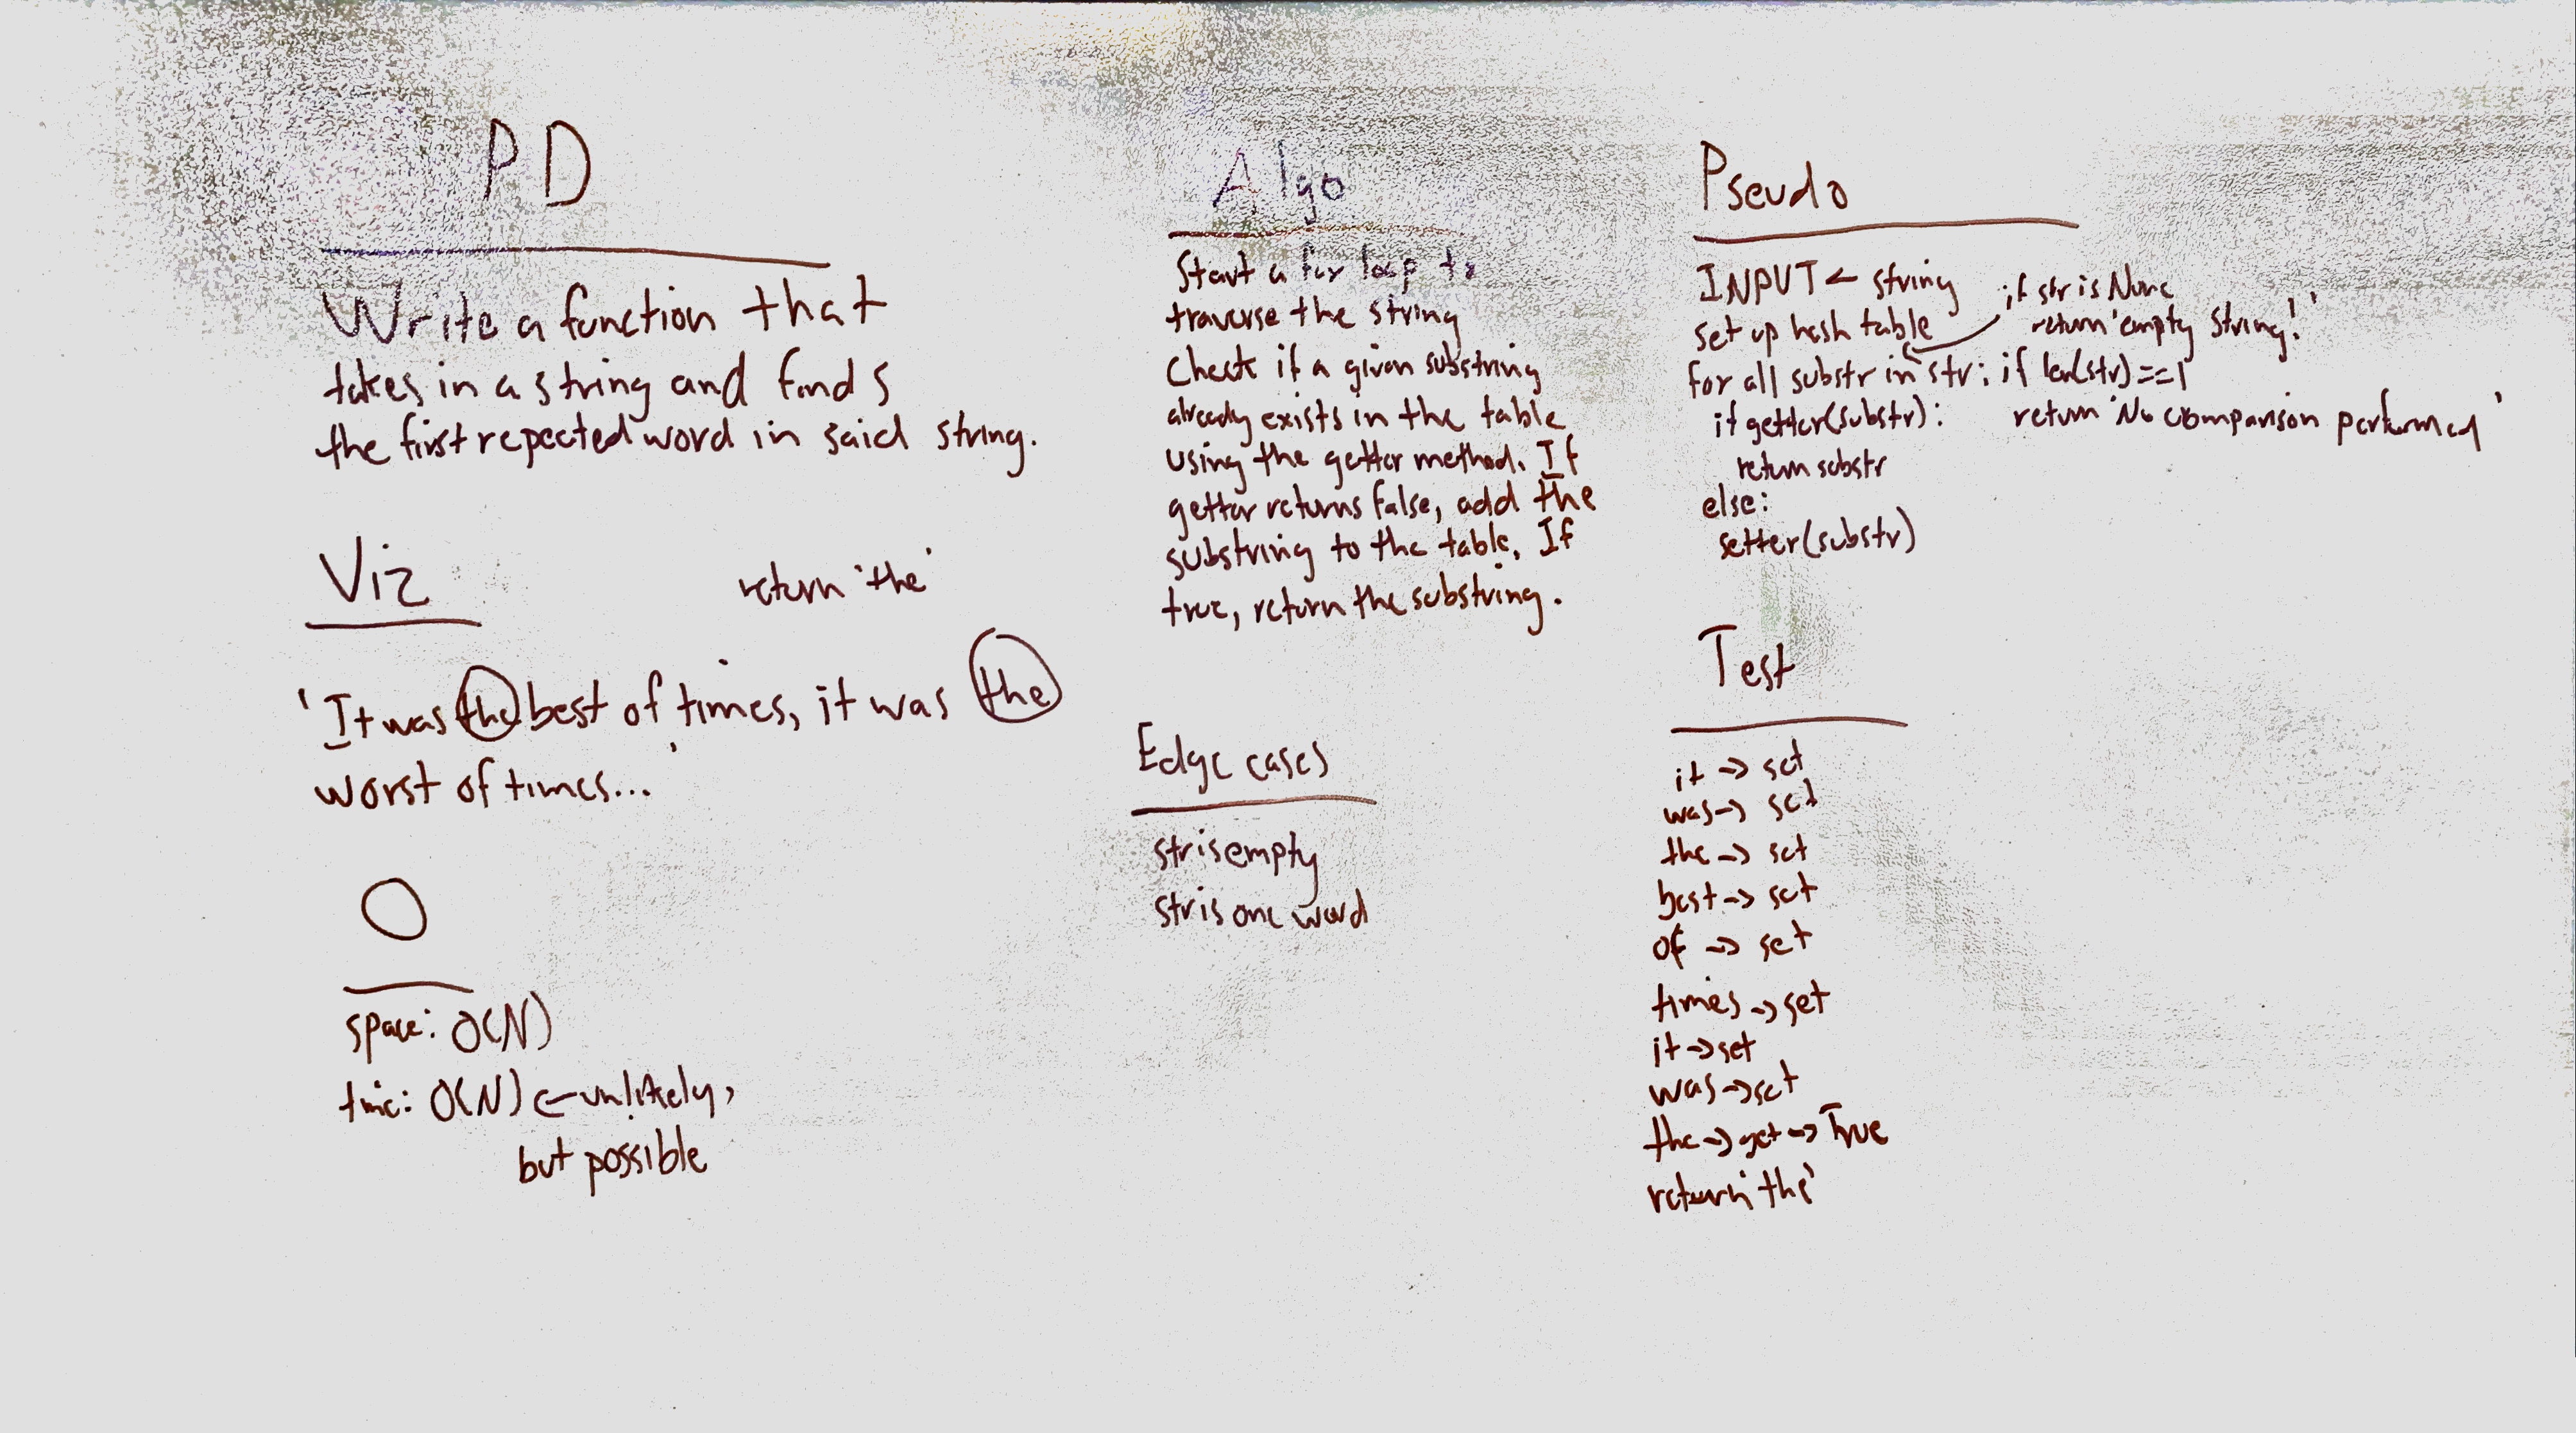 PD
Write a function that
takes in a string and finds
the first repeated word in said string.
Viz
return 'the'
'It was the best of times, it was the
worst of times...'
O
space: O(N)
time: O(N) ← unlikely,
but possible
Algo
Start a for loop to
traverse the string
Check if a given substring
already exists in the table
using the getter method. If
getter returns false, add the
substring to the table. If
true, return the substring.
Edge cases
str is empty
str is one word
Pseudo
INPUT ← string
set up hash table
if str is None
return 'empty string!'
for all substr in str:
if len(str)==1
return 'No comparison performed'
if getter(substr):
return substr
else:
setter(substr)
Test
it → set
was → set
the → set
best → set
of → set
times → set
it → set
was → set
the → get → True
return 'the'